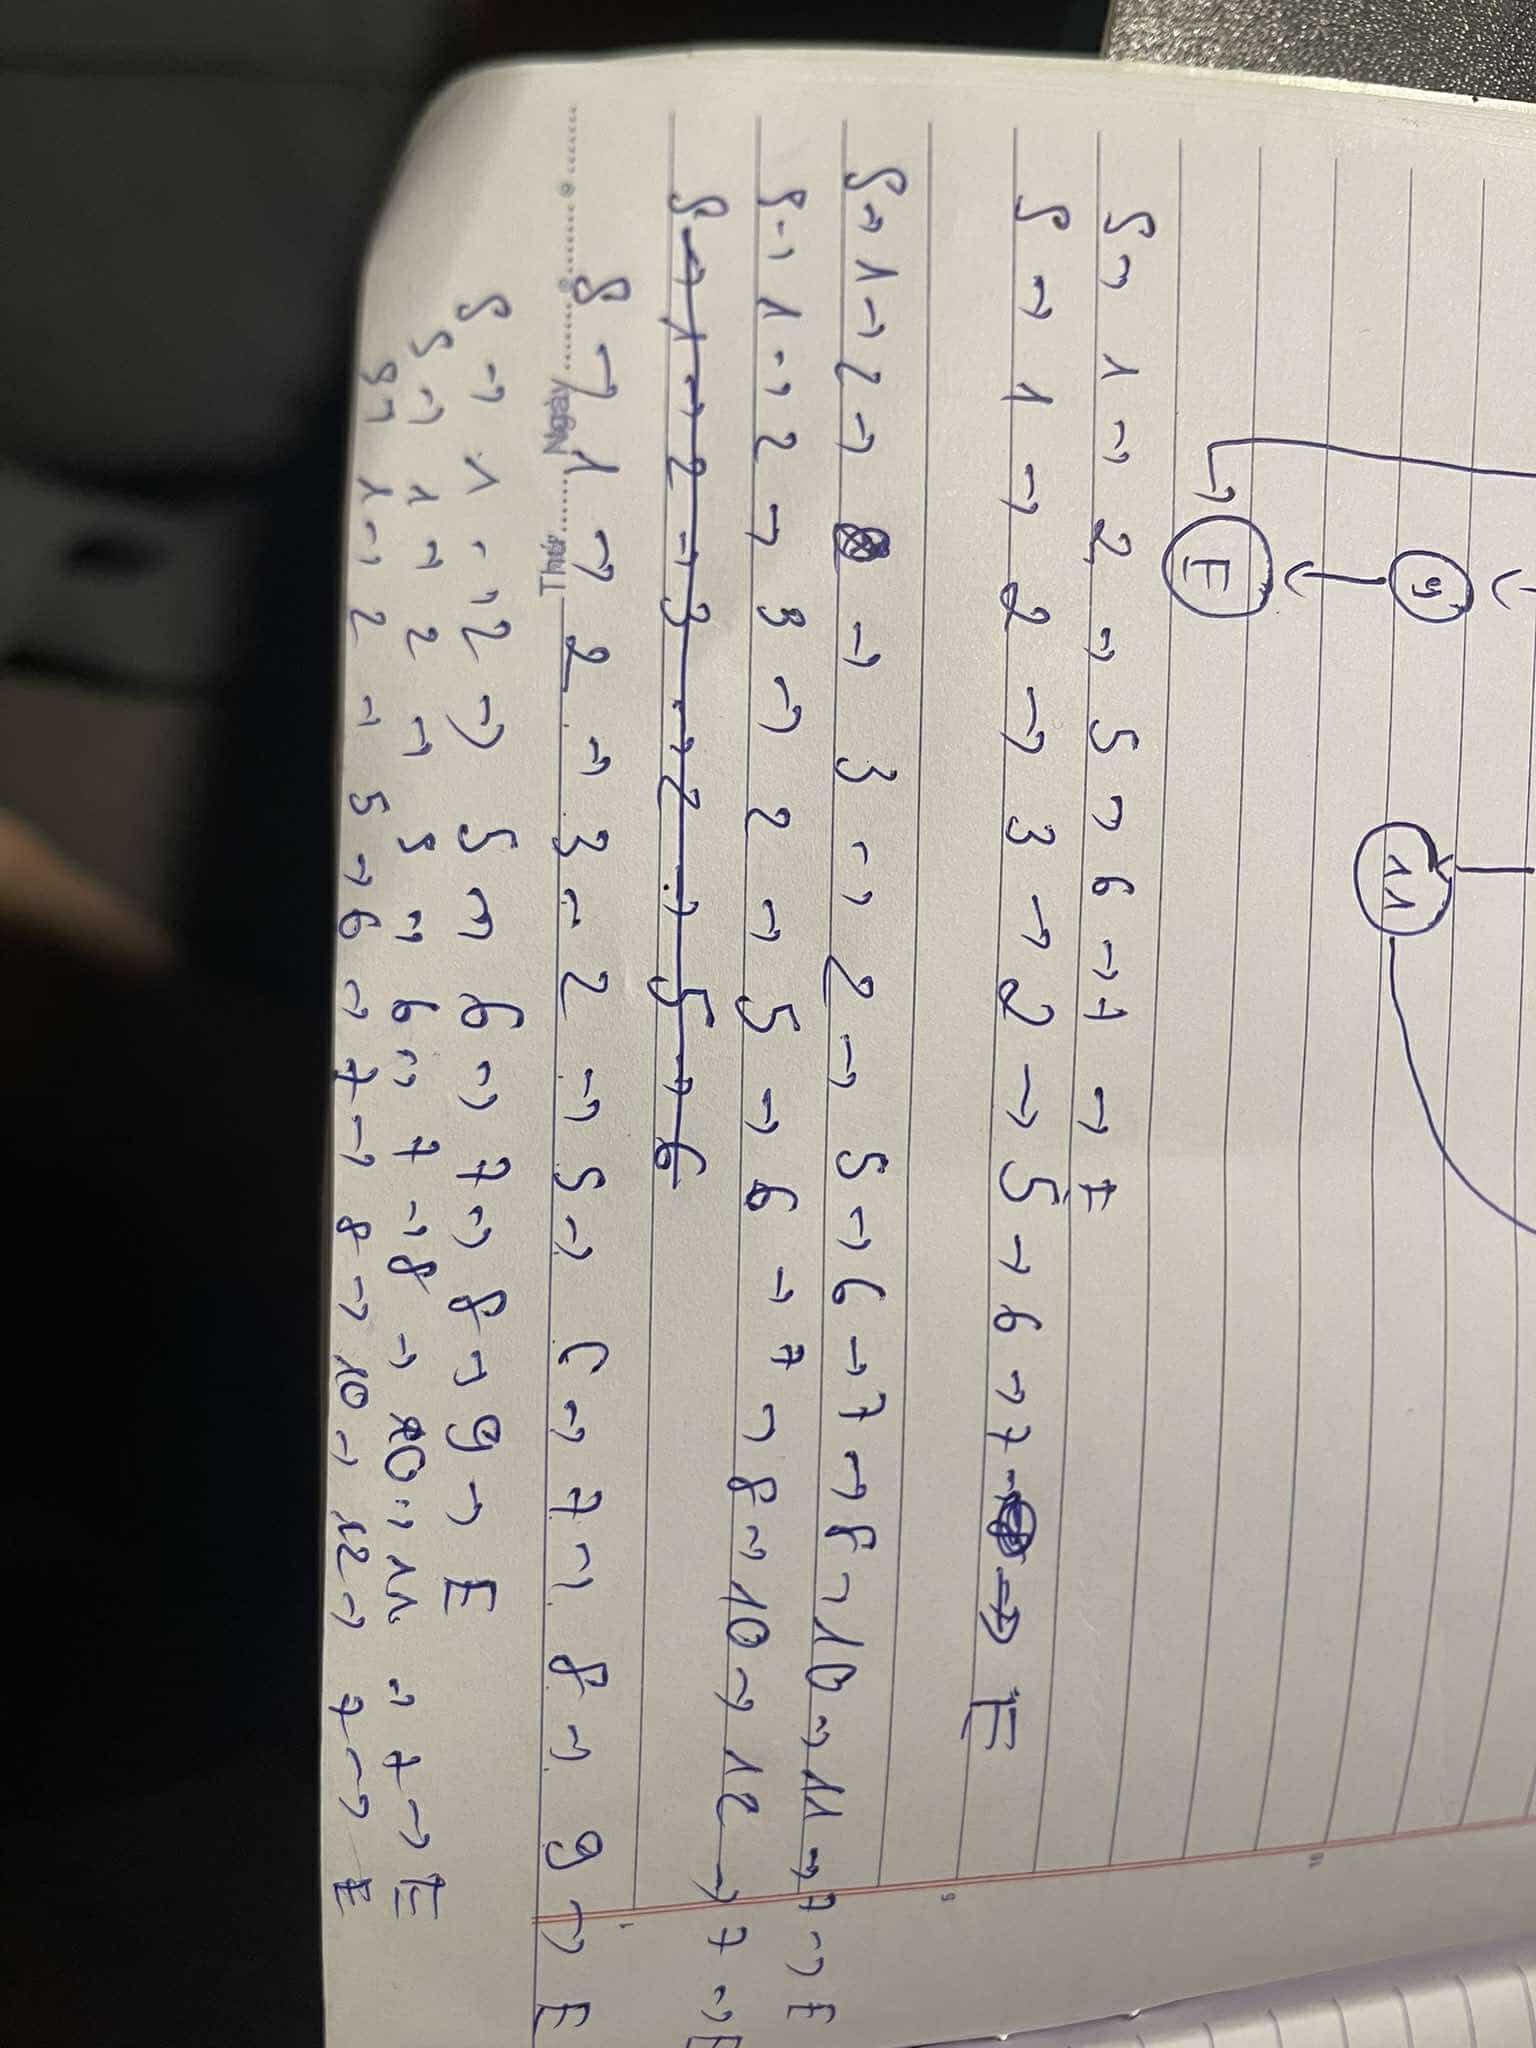 9 11
E
S → 1 → 2 → 5 → 6 → 7 → E
S → 1 → 2 → 3 → 2 → 5 → 6 → 7 → E
S → 1 → 2 → → 3 → 2 → 5 → 6 → 7 → 8 → 10 → 11 → 7 → E
S → 1 → 2 → 3 → 2 → 5 → 6 → 7 → 8 → 10 → 12 → 7 → E
S → 1 → 2 → 3 → 2 → 5 → 6
S → 1 → 2 → 3 → 2 → 5 → 6 → 7 → 8 → 9 → E
Thứ Ngày
S → 1 → 2 → 5 → 6 → 7 → 8 → 9 → E
S → 1 → 2 → 5 → 6 → 7 → 8 → 10 → 11 → 7 → E
S → 1 → 2 → 5 → 6 → 7 → 8 → 10 → 12 → 7 → E